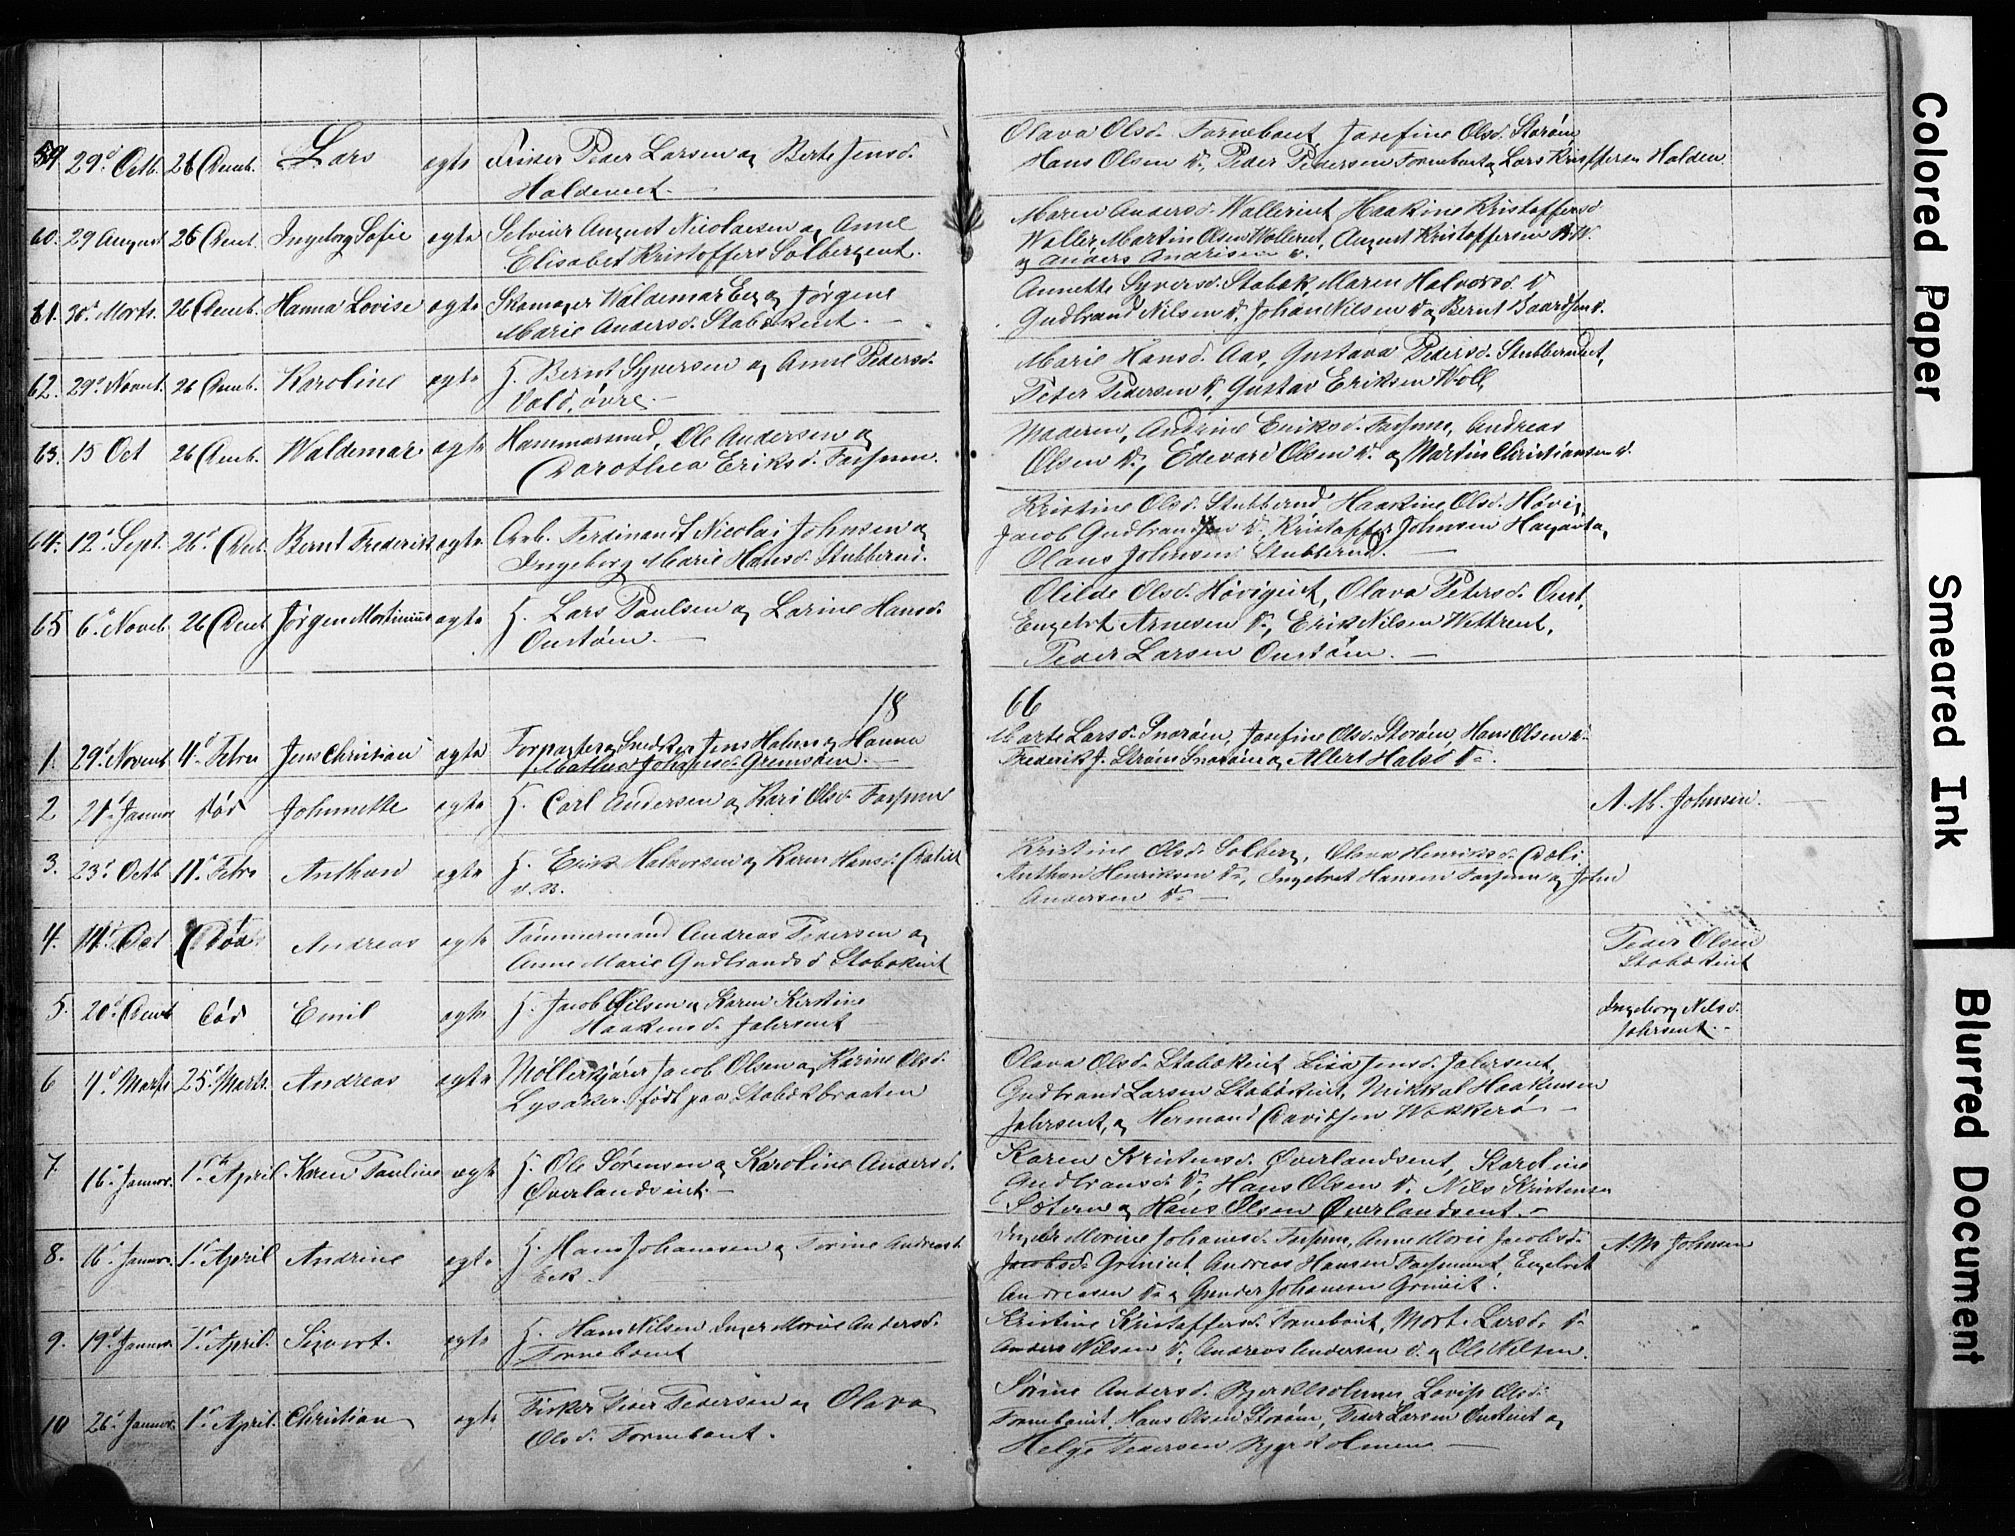 59. 29d Octb. 26 Decmb. Lars ægte Fisker Peder Larsen og Berte Jensd.
Haldeneiet.
Olava Olsd. Fornebont, Josefine Olsd. Storøen
Hans Olsen do, Peder Pedersen Fornebont og Lars Kristoffersen Halden
60. 29 August 26 Decmb. Ingeborg Sofie ægte Selveier August Nicolaisen og Anne
Elisabet Kristoffersd. Solbergeiet.
Maren Andersd. Walleriet, Haakine Kristoffersd.
Waller, Martin Olsen Wolleret, August Kristoffersen
og Anders Andresen do.
61. 30d Morts. 26 Decmb. Hanna Lovise ægte Skomager Waldemar Eng og Jørgene
Marie Andersd. Stabækeiet.
Annette Syversd. Stabæk Maren Halvorsd. do
Gudbrand Nilsen do. Johan Nilsen do og Bernt Baardsen do.
62. 29d Novmb. 26 Decmb. Karoline ægte H. Bernt Syversen og Anne Pedersd.
Vold, øvre.
Marie Hansd. Aas, Gustava Pedersd. Stubberudeiet,
Peter Pedersen do, Gustav Eriksen Woll,
63. 15 Oct 26 Decmb. Waldemar ægte Hammersmed, Ole Andersen og
Dorothea Eriksd. Fossum.
Moderen, Andrine Eriksd. Fossum, Andreas
Olsen do., Edevard Olsen do. og Martin Christiansen do.
64. 12d Sept. 26d Decb. Bernt Frederik ægte Arb. Ferdinant Nicolai Johnsen og
Ingeborg Marie Hansd. Stubberud.
Kristine Olsd. Stubberud, Haakine Olsd. Høvig
Jacob Gudbrandsen do, Kristoffer Johnsen Haganta,
Olaus Johnsen Stubberud.
65 6d Novb. 26 Decmb. Jørgen Mortinius ægte H. Lars Paulsen og Larine Hansd.
Oustøen.
Olilde Olsd. Høvigeiet, Olava Petersd. Oust.
Engebret Arnesen do, Erik Nilsen Wettreeiet,
Peder Larsen Oustøen.
18 66
1. 29d Novmb 4d Febru Jens Christian ægte Forpagter og Smedster Jens Holm og Hanna
Mathea Johansd. Grimsøen.
Marte Larsd. Snarøen, Josefine Olsd. Storøen, Hans Olsen do
Frederik J. Strøm Snarøen og Albert Halsø do
2 21d Januar død Johnnette ægte H. Carl Andersen og Kari Olsd. Fossum
A. M. Johnsen.
3. 23d Octb 11d Febru Anthon ægte H. Erik Halvorsen og Karen Hansd.
v. B.
Kristine Olsd. Solberg, Olava Henriksd. Dæli
Anthon Henriksen do, Ingebret Hansen Fossum og John
Andersen do
4. 14d Oct død Andreas ægte Tømmermand Andreas Pedersen og
Anne Marie Gudbrandsd. Stabækeiet
Peder Olsen
Stabækeiet
5. 20d Decmb død Emil ægte H. Jacob Nilsen og Karen Kirstine
Haakensd. Jahrseiet
Ingeborg Nilsd.
Jahrseiet.
6 4d Marts 25d Marts. Andreas ægte Møllerkjører Jacob Olsen og Karine Olsd.
Lysaker. født paa Stabækbraaten
Olava Olsd. Stabækeiet Lise Jensd. Jahrseiet,
Gudbrand Larsen Stabækeiet, Mikkal Haakensen
Jahrseiet, og Hermand Davidsen Wækkerø
7. 16d Januar. 1ste April. Karen Pauline ægte H. Ole Sørensen og Karoline Andersd.
Øverlandseiet.
Karen Kristensd. Øverlandseiet, Karoline
Gudbransd. do, Hans Olsen do. Nils Kristensen
Sætern og Hans Olsen Øverlandseiet.
8. 16d Januar. 1d April Andrine ægte H. Hans Johannsen og Torine Andreasd.
Eek.
Inger Morine Johansd. Fossum, Anne Morie Jacobsd.
Jacobsd. Grinieiet. Andreas Hansen Fossumeiet, Engebret
Andreasen do og Gunder Johannsen Grinieiet.
A. M. Johnsen
9. 19d Januar. 1d April. Sigvort. ægte H. Hans Nilsen Inger Morine Andersd.
Fornebont
Kristine Kristoffersd. Fornebont, Mort. Larsd. do
Anders Nilsen do, Andreas Andersen do. og Ole Nilsen.
10 26d Januar. 1d April. Christian ægte Fisker Peder Pedersen og Olava
Olsd. Fornebont.
Sørine Andersd. Bjerkholmen, Lovise Olsd.
Fornebont, Hans Olsen Storøen, Peder Larsen Oustøeiet og
Helge Pedersen Bjerkholmen
Colored Paper
Smeared Ink
Blurred Document